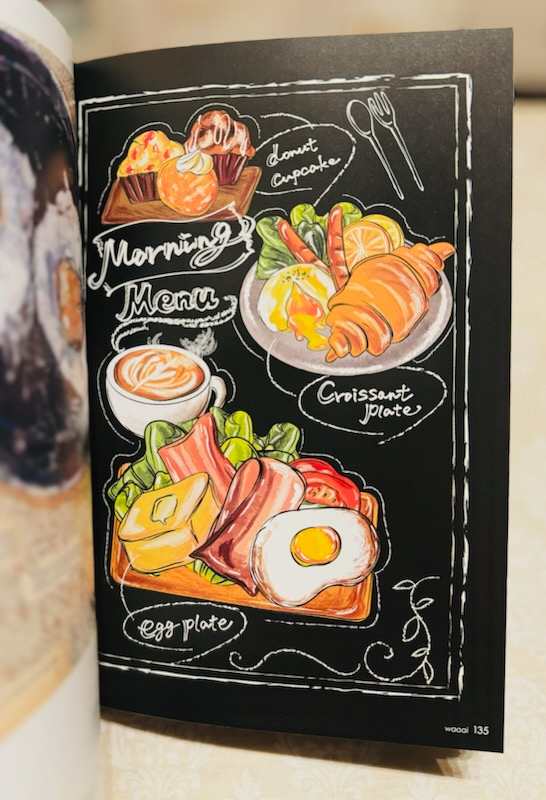 donut
cupcake
Morning
Menu
Croissant
plate
egg plate
waaai 135